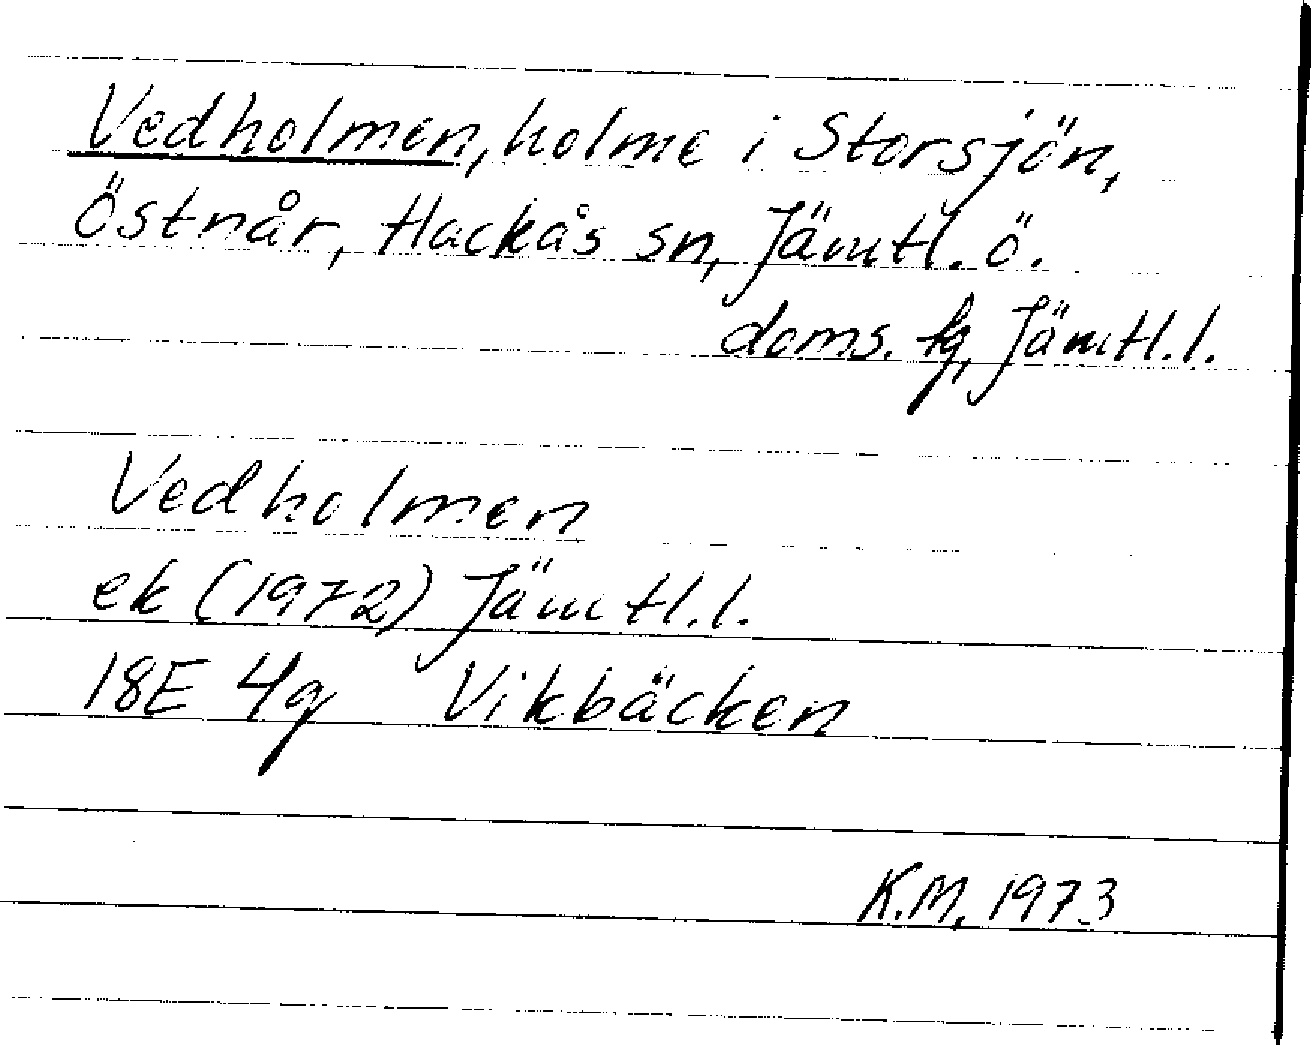 Vedholmen, holme i Storsjön,
Östnår, Hackås sn, Jämtl. ö.
doms. fg, Jämtl. l.
Vedholmen
ek (1972) Jämtl. l.
18E 4g Vikbäcken
K.M. 1973